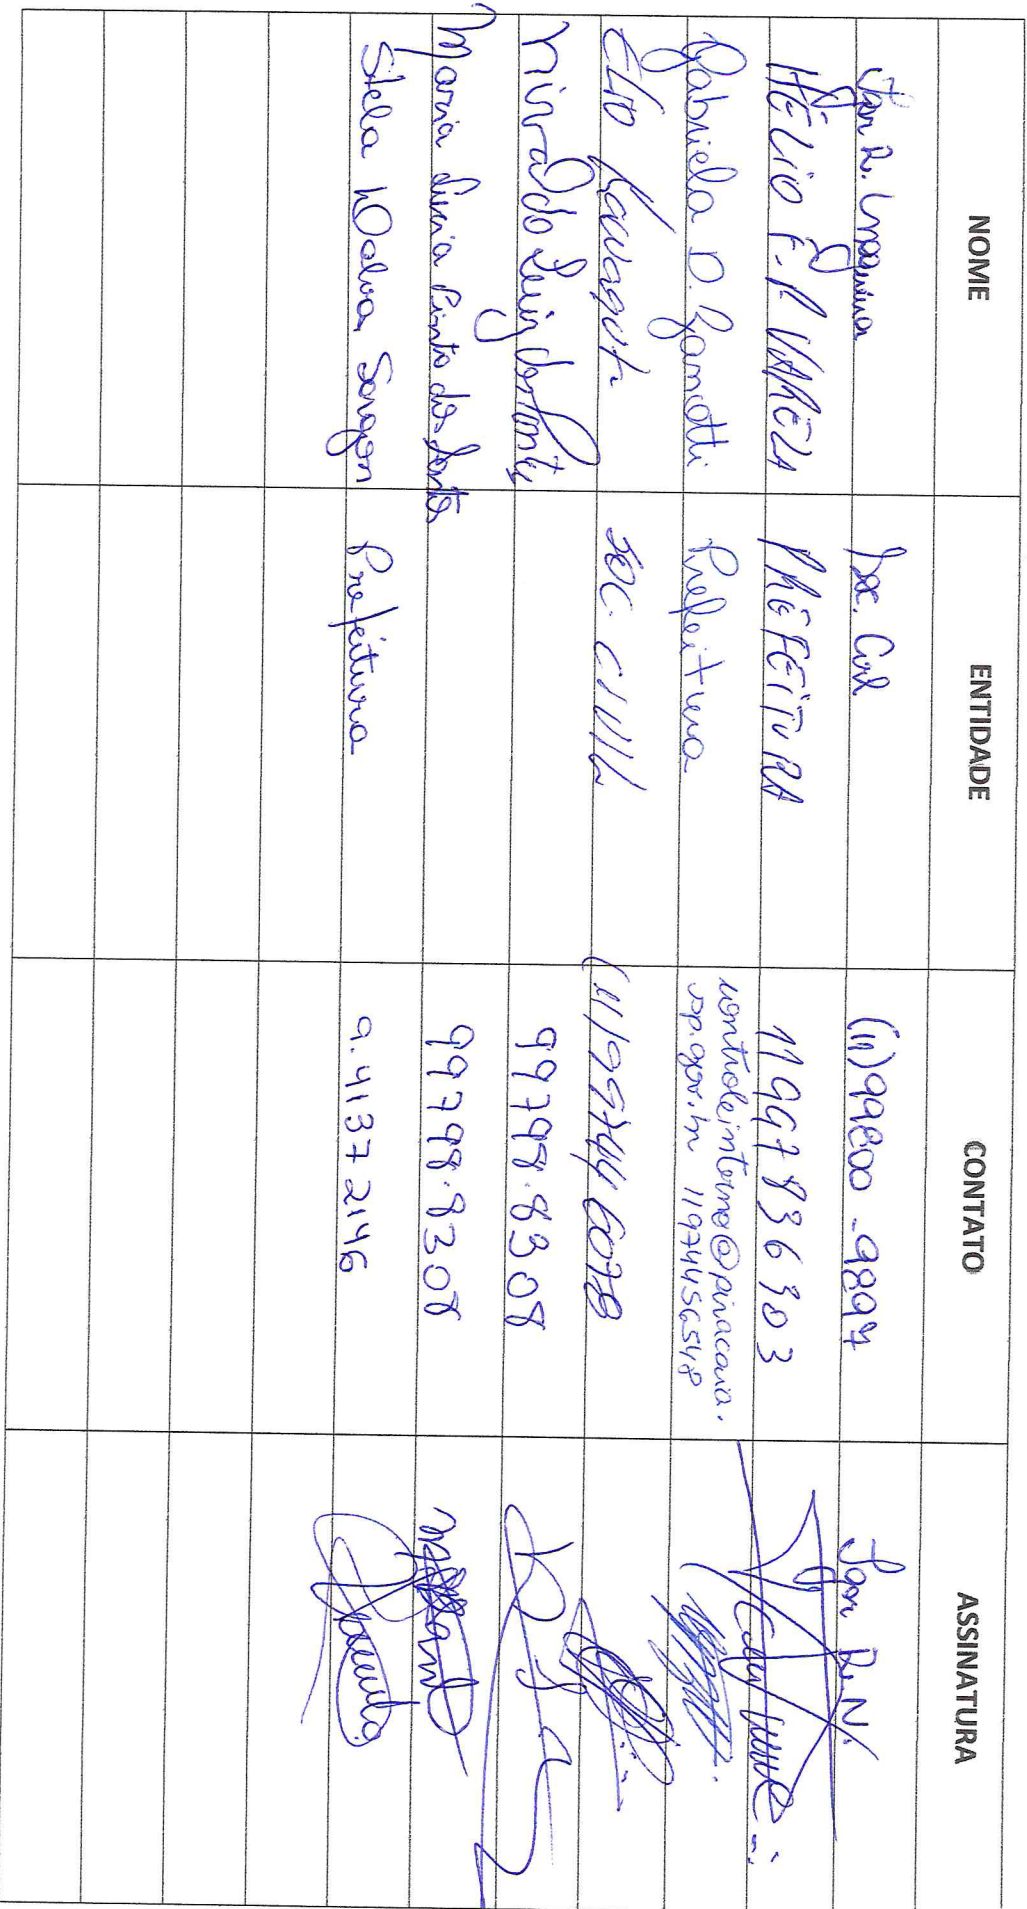 NOME ENTIDADE CONTATO ASSINATURA
R. Soc. Civil (11) 99800-9897 Igor R. N.
HÉLIO F. P. VAREZA PREFEITURA 11997836303
Gabriela D. Zanotti Prefeitura controleinterno@piracaia.
sp.gov.br 11974456548
ELIO SOC. CIVIL (11) 997446078
Nivaldo Luiz dos Santos 99798.8308
Maria Lucia Pinto dos Santos 99798.8308
Stela Dalva Prefeitura 9.41372146